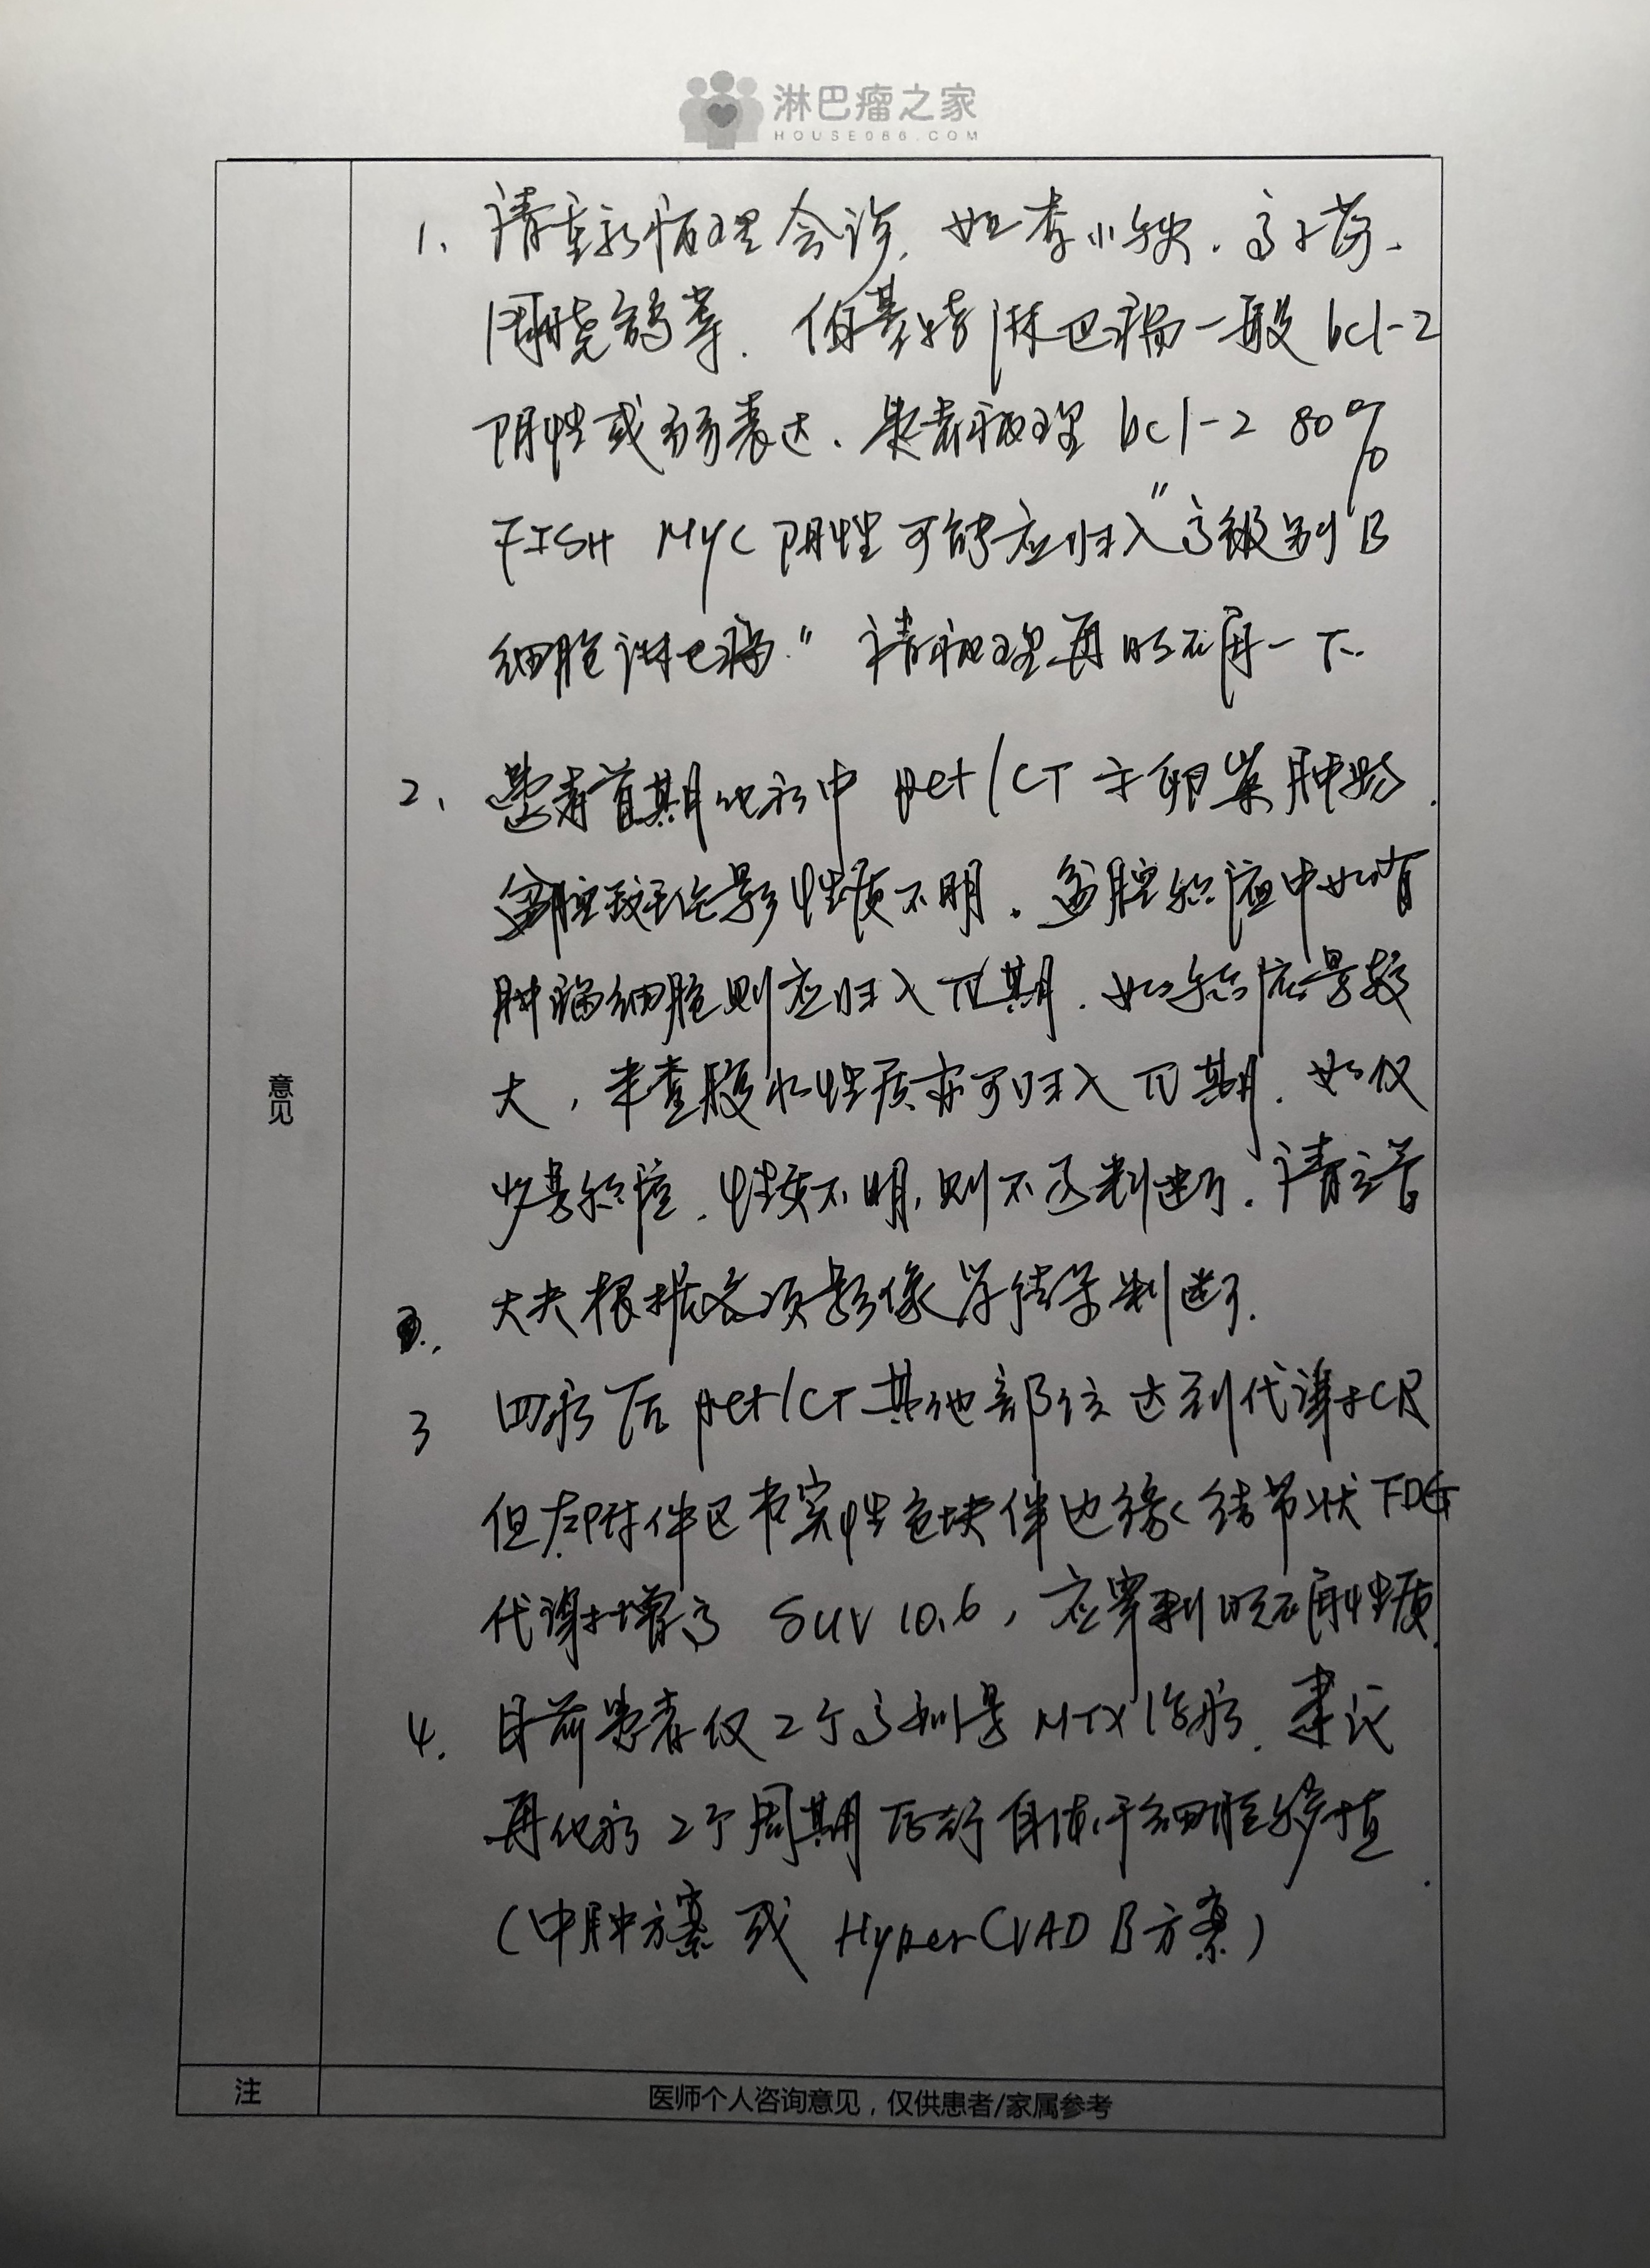 淋巴瘤之家
HOUSE086.COM
意见
1、请重新病理会诊,如李小秋、高子芬、
周晓鸽等.伯基特淋巴瘤一般 bcl-2
阴性或弱表达.患者病理 bcl-2 80%
FISH MYC 阴性可能应归入"高级别B
细胞淋巴瘤."请病理再明确一下.
2、患者首期化疗中 pet/CT 示卵巢肿物.
盆腔致密影性质不明.盆腔积液中如有
肿瘤细胞则应归入IV期.如积液量较
大,未查腹水性质亦可归入IV期.如仅
少量积液、性质不明,则不好判断.请主管
大夫根据各项影像学结果判断.
3 四疗后 pet/CT 其他部位达到代谢CR
但左附件区有实性包块伴边缘结节状FDG
代谢增高 SUV 10.6,应穿刺明确性质.
4. 目前患者仅2个高剂量MTX化疗.建议
再化疗2个周期后行自体干细胞移植
(中肿方案 或 HyperCVAD B方案)
注
医师个人咨询意见,仅供患者/家属参考